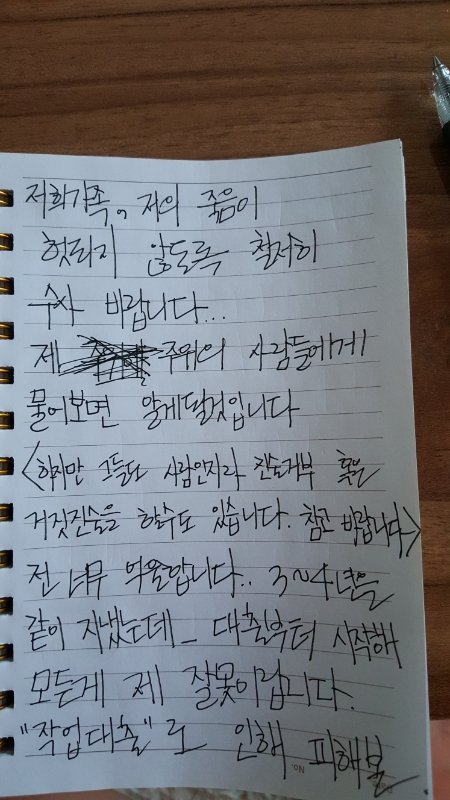 저희가족, 저의 죽음이
헛되지 않도록 철저히
수사 바랍니다...
제 주위의 사람들에게
물어보면 알게될것입니다
<하지만 그들도 사람인지라 진술거부 혹은
거짓진술을 할수도 있습니다. 참고 바랍니다>
전 너무 억울합니다.. 3~4년을
같이 지냈는데_ 대출부터 시작해
모든게 제 잘못이랍니다.
"작업대출"로 인해 피해볼